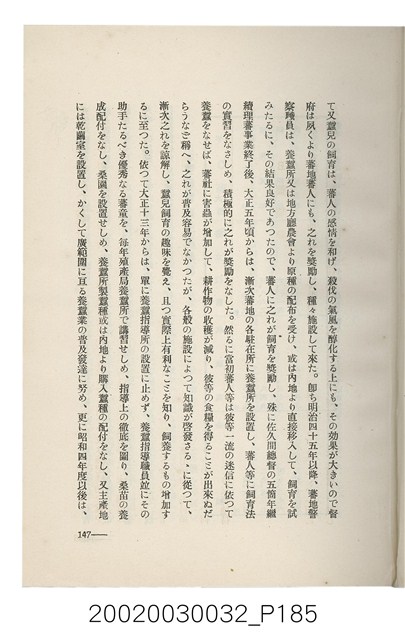 て又蠶兒の飼育は、蕃人の感情を和げ、殺伐の氣風を醇化する上にも、その効果が大きいので督
府は夙くより蕃地蕃人にも、之れを奬勵し、種々施設して來た。卽ち明治四十五年以降、蕃地警
察職員は、養蠶所又は地方廳農會より原種の配布を受け、或は內地より直接移入して、飼育を試
みたるに、その結果良好であつたので、蕃人に之れが飼育を奬勵し、殊に佐久間總督の五箇年繼
續理蕃事業終了後、大正五年頃からは、漸次蕃地の各駐在所に養蠶所を設置し、蕃人等に飼育法
の實習をなさしめ、積極的に之れが奬勵をなした。然るに當初蕃人等は彼等一流の迷信に依つて
養蠶をなせば、蕃社に害蟲が增加して、耕作物の收穫が減り、彼等の食糧を得ることが出來ぬだ
らうなど稱へ、之れが普及容易でなかつたが、各般の施設によつて知識が啓發さるゝに從つて、
漸次之れを諒解し、蠶兒飼育の趣味を覺え、且つ實際上有利なことを知り、飼養するもの增加す
るに至つた。依つて大正十三年からは、單に養蠶指導所の設置に止めず、養蠶指導職員竝にその
助手たるべき優秀なる蕃童を、每年殖產局養蠶所で講習せしめ、指導上の徹底を圖り、桑苗の養
成配付をなし、桑園を設置せしめ、養蠶所製蠶種或は內地より購入蠶種の配付をなし、又主產地
には乾繭室を設置し、かくして廣範圍に亘る養蠶業の普及發達に努め、更に昭和四年度以後は、
147—
20020030032_P185